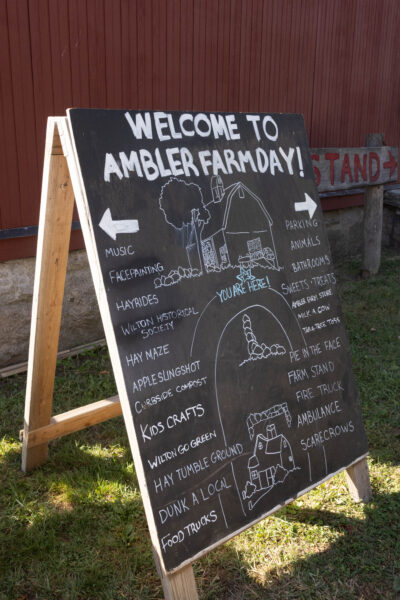 WELCOME TO
AMBLER FARM DAY!
STAND
MUSIC
FACEPAINTING
HAYRIDES
WILTON HISTORICAL
SOCIETY
HAY MAZE
APPLE SLINGSHOT
CURBSIDE COMPOST
KIDS CRAFTS
WILTON GO GREEN
HAY TUMBLE GROUND
DUNK A LOCAL
FOOD TRUCKS
YOU ARE HERE!
PARKING
ANIMALS
BATHROOMS
SWEETS TREATS
AMBLER FARM STORE
MILK A COW
TRICK TREE
PIE IN THE FACE
FARM STAND
FIRE TRUCK
AMBULANCE
SCARECROWS